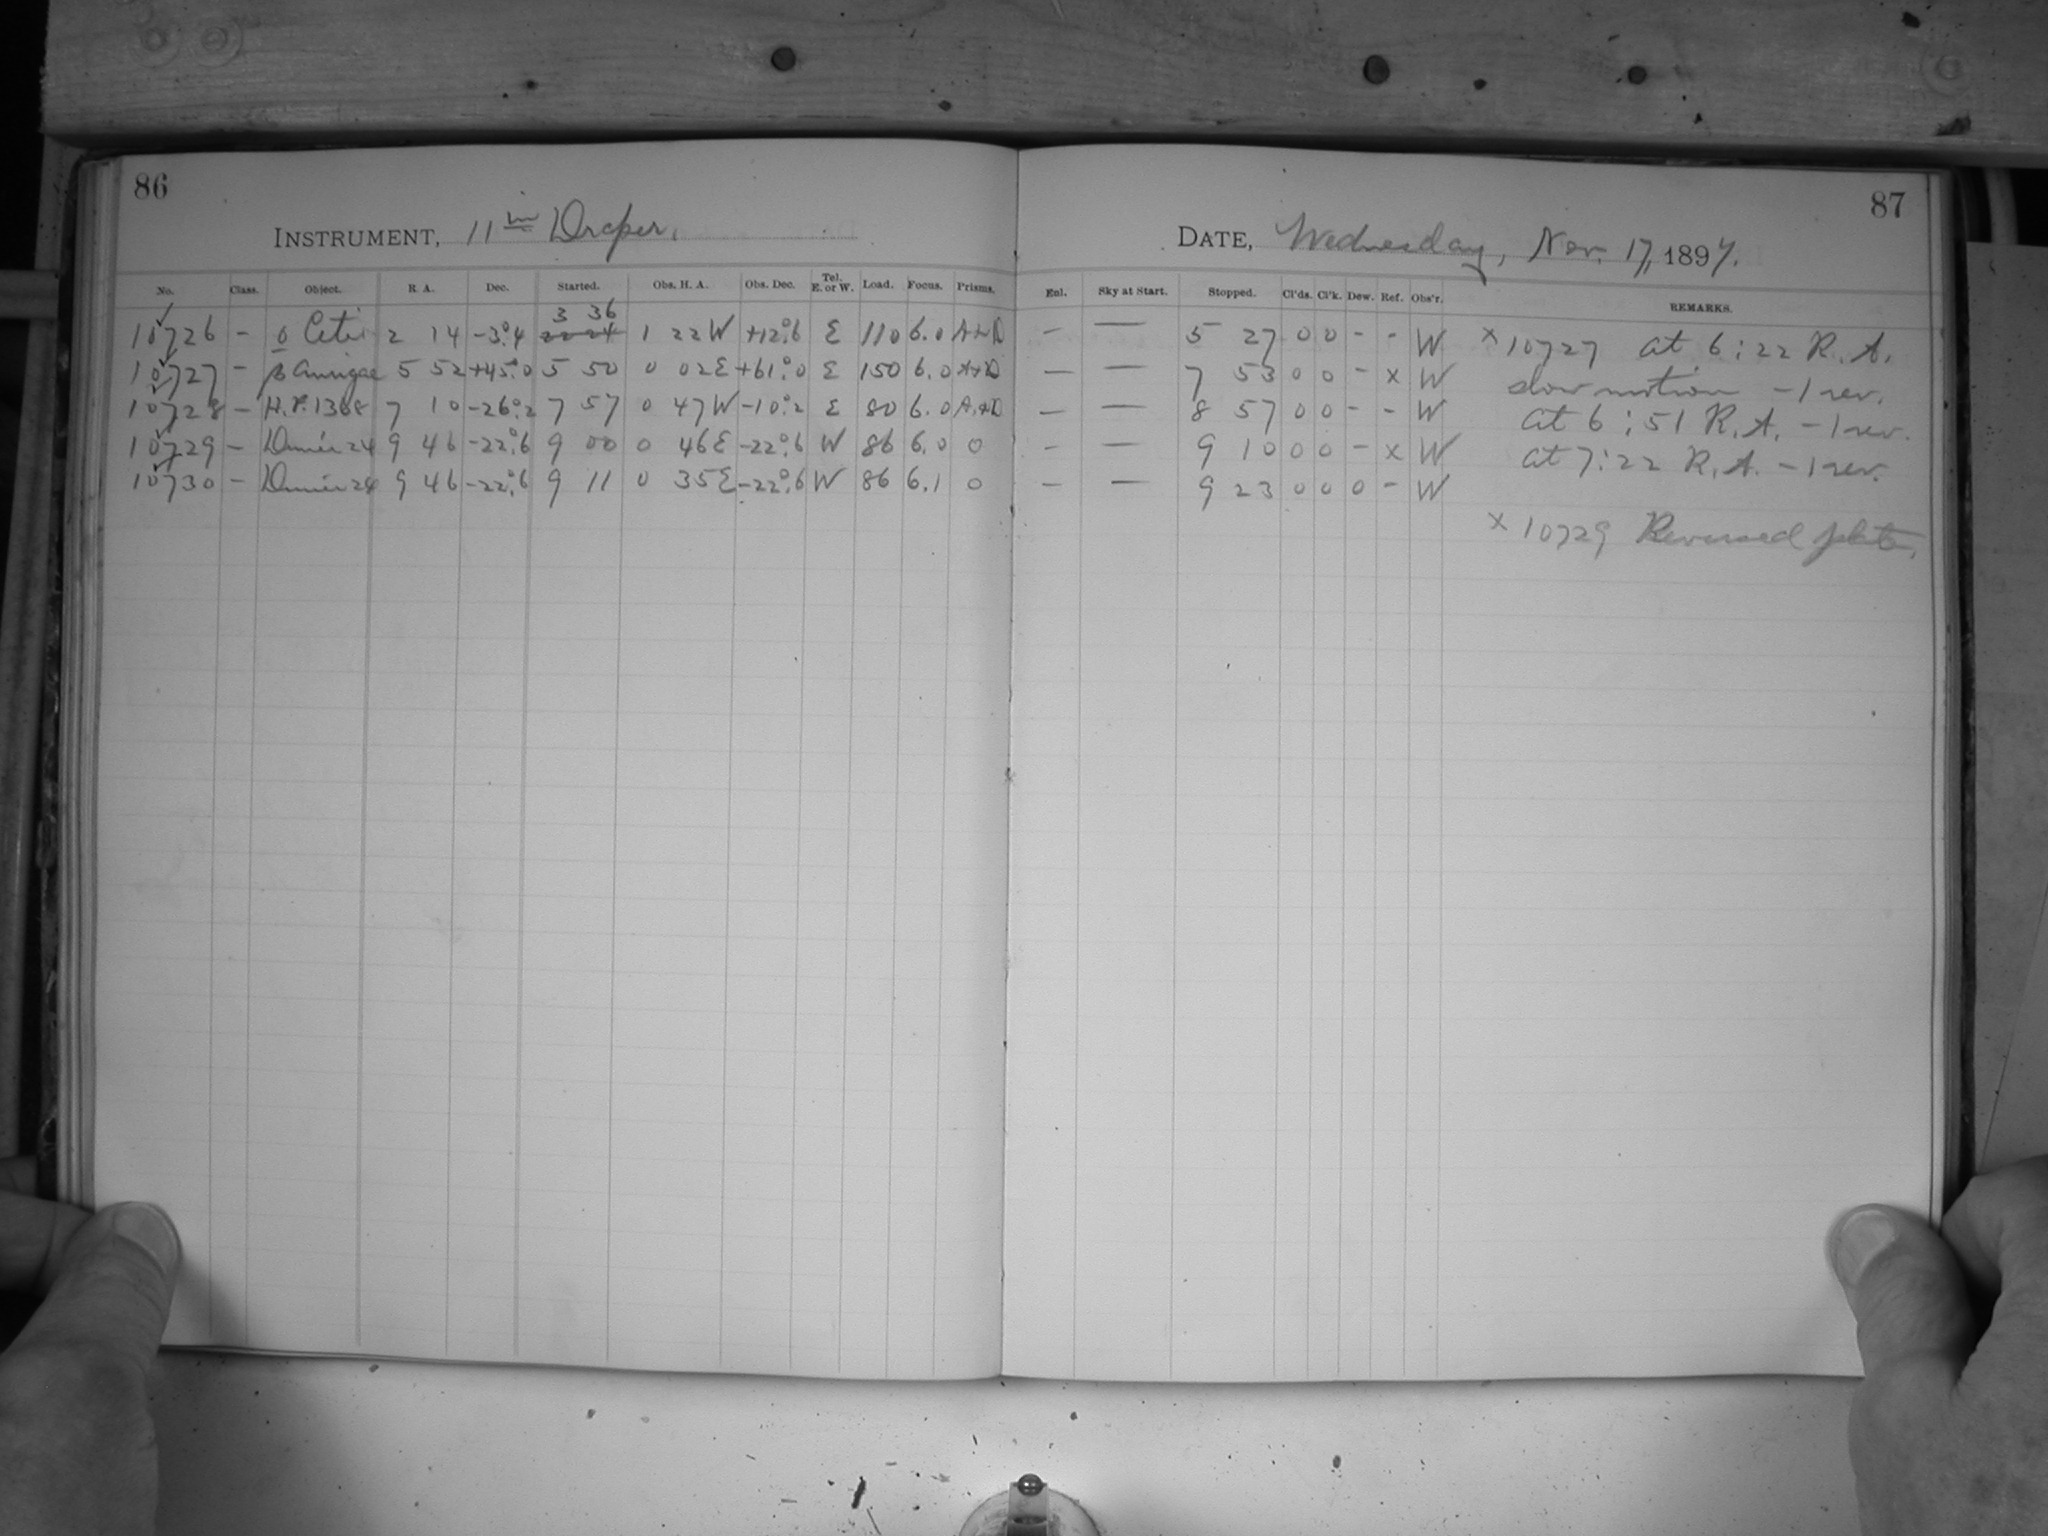 86
INSTRUMENT, 11 in Draper.
No. Class. Object. R. A. Dec. Started. Obs. H. A. Obs. Dec. Tel. E. or W. Load. Focus. Prisms.
3 36
10726 - o Ceti 2 14 -3°.4 1 22 W +12°.6 E 110 6.0 A+D
10727 - β Aurigae 5 52 +45°.0 5 50 0 02 E +61°.0 E 150 6.0 A+D
10728 - H.P. 1368 7 10 -26°.2 7 57 0 47 W -10°.2 E 80 6.0 A+D
10729 - Dunér 24 9 46 -22°.6 9 00 0 46 E -22°.6 W 86 6.0 0
10730 - Dunér 24 9 46 -22°.6 9 11 0 35 E -22°.6 W 86 6.1 0
87
DATE, Wednesday, Nov. 17, 1897.
Enl. Sky at Start. Stopped. Cl'ds. Cl'k. Dew. Ref. Obs'r. REMARKS.
- — 5 27 0 0 - - W x 10727 at 6:22 R.A.
- — 7 53 0 0 - x W slow motion -1 rev.
- — 8 57 0 0 - - W at 6:51 R.A. -1 rev.
- — 9 10 0 0 - x W at 7:22 R.A. -1 rev.
- — 9 23 0 0 0 - W
x 10729 Reversed plate.